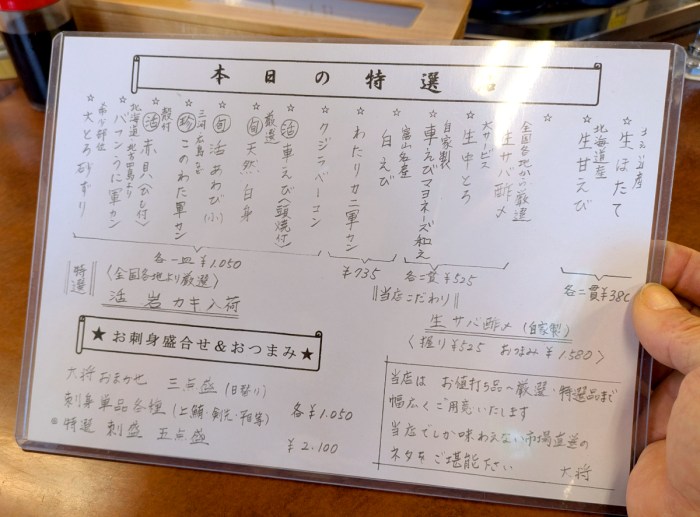 本日の特選
産
☆ 生ほたて
北海道産
☆ 生甘えび
全国各地から厳選
☆ 生サバ酢〆
大サービス
☆ 生中とろ
自家製
☆ 車えびマヨネーズ和え
富山名産
☆ 白えび
☆ わたりカニ軍カン
☆ クジラベーコン
☆ 活 車えび(頭焼付)
厳選
☆ 旬 天然白身
☆ 旬 活あわび
三河 広島など
☆ 珍 このわた軍カン
殻付
☆ 活 赤貝(ひも付)
北海道
☆ バフンうに軍カン
希少部位
☆ 大とろ砂ずり
各二貫¥380
各二貫¥525
¥735
各一皿¥1.050
特選
〈全国各地より厳選〉
活 岩カキ入荷
当店こだわり
生サバ酢〆(自家製)
〈握り¥525 おつまみ¥1580〉
★お刺身盛合せ&おつまみ★
大将おまかせ 三点盛(日替り)
刺身単品各種 各¥1.050
特選 刺盛 五点盛
¥2.100
当店は お値打ち品〜厳選・特選品まで
幅広くご用意いたします
当店でしか味わえない市場直送の
ネタをご堪能下さい
大将